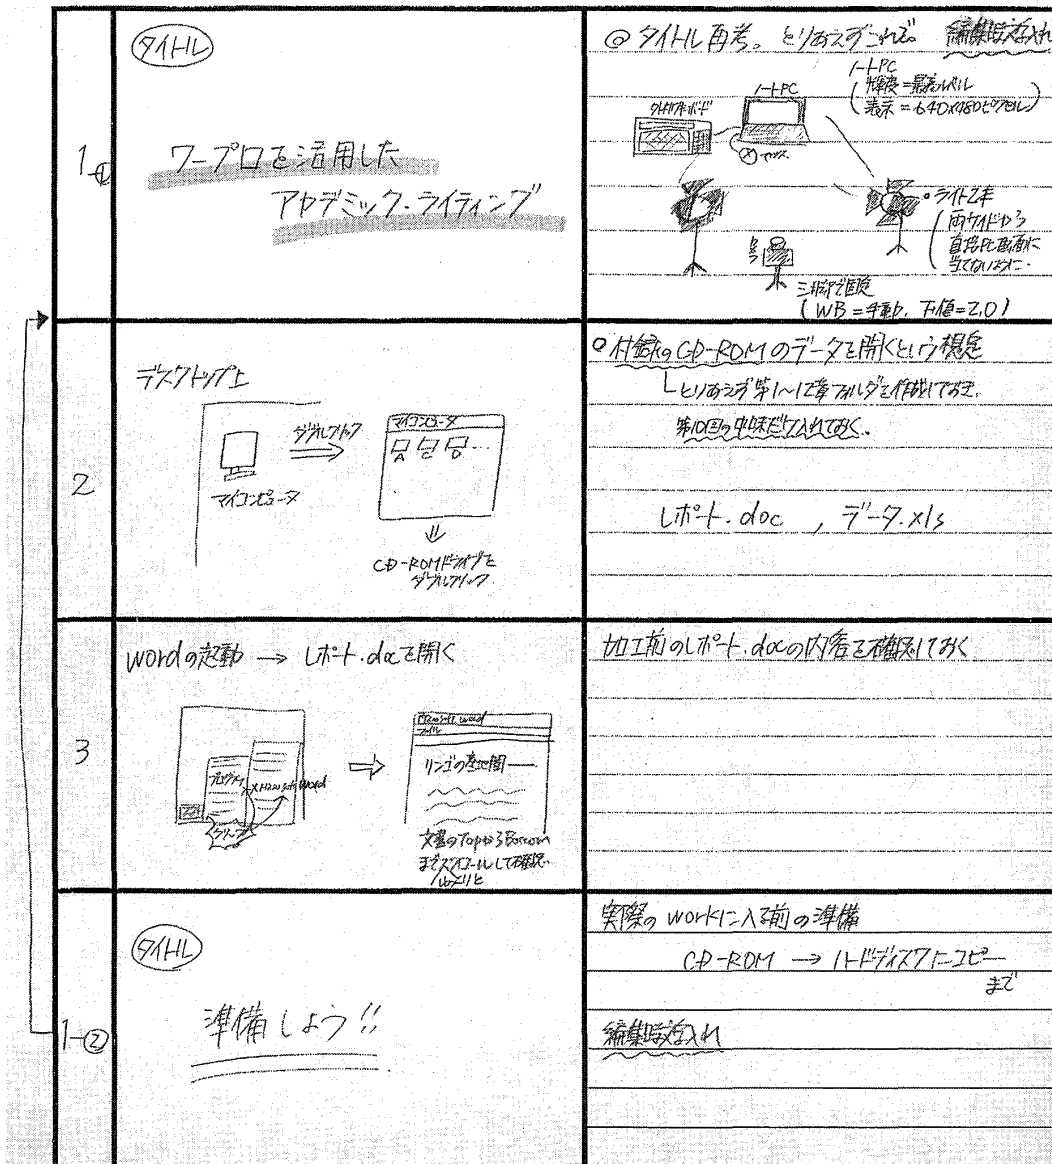 タイトル
◎ タイトル再考。とりあえずこれで。 編集時差入れ
1-①
ワープロを活用した
アカデミック・ライティング
ノートPC
(輝度=最高レベル
表示=640×480ピクセル)
ノートPC
ライト2本
(両サイドから
直接PC画面に
当てないように.
カメラ
三脚で固定
(WB=手動、F値=2.0)
2
デスクトップ上
マイコンピュータ
ダブルクリック
マイコンピュータ
CD-ROMドライブを
ダブルクリック
○付録のCD-ROMのデータを開くという想定
とりあえず第1〜12章フォルダを作成しておき、
第10回の中味だけ入れておく。
レポート.doc , データ.xls
3
Wordの起動 → レポート.docを開く
プログラム
Microsoft Word
クリック
Microsoft Word
ファイル
リンゴの産地間
文書のTopからBottom
までスクロールして確認
ゆっくりと
加工前のレポート.docの内容を確認しておく
1-②
タイトル
準備しよう!!
実際のworkに入る前の準備
CD-ROM → ハードディスクにコピー
まで
編集時差入れ